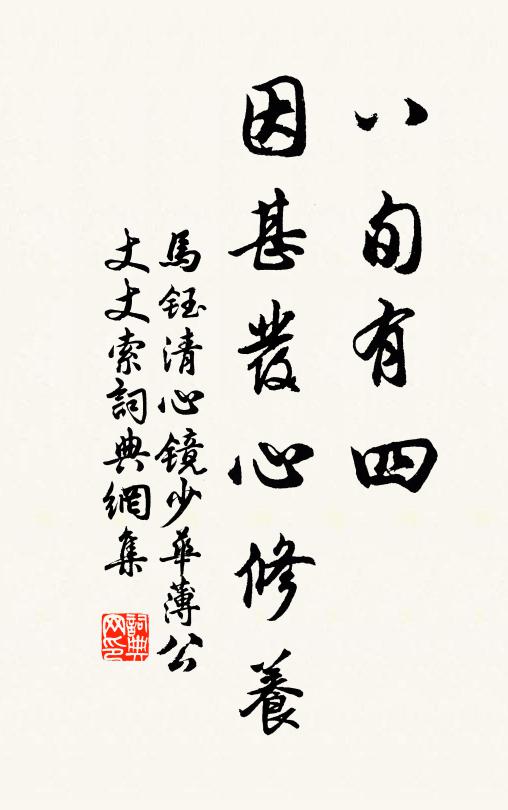 八旬有四
因甚發心修養
馬鈺清心镜少華薄公
丈丈索詞典網集
詞典
网印